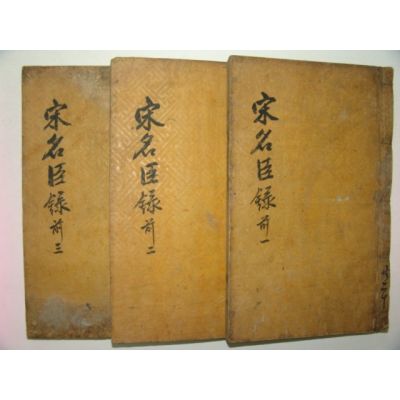 宋名臣録前一
宋名臣録前二
宋名臣録前三